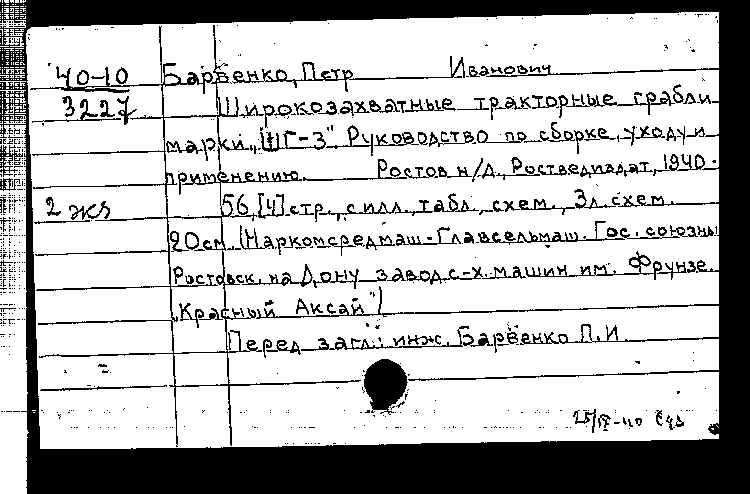 40-10 Барвенко, Петр Иванович
3227 Широкозахватные тракторные грабли
марки „ШГ-3". Руководство по сборке, уходу и
применению. Ростов н/Д., Ростведиздат, 1940.
2 экз 56, [4] стр., с илл., табл., схем., 3 л. схем.
20 см. (Наркомсредмаш-Главсельмаш. Гос. союзны
Ростовск. на Дону завод с-х. машин им. Фрунзе.
„Красный Аксай")
Перед загл.: инж. Барвенко П. И.
25/IV-40